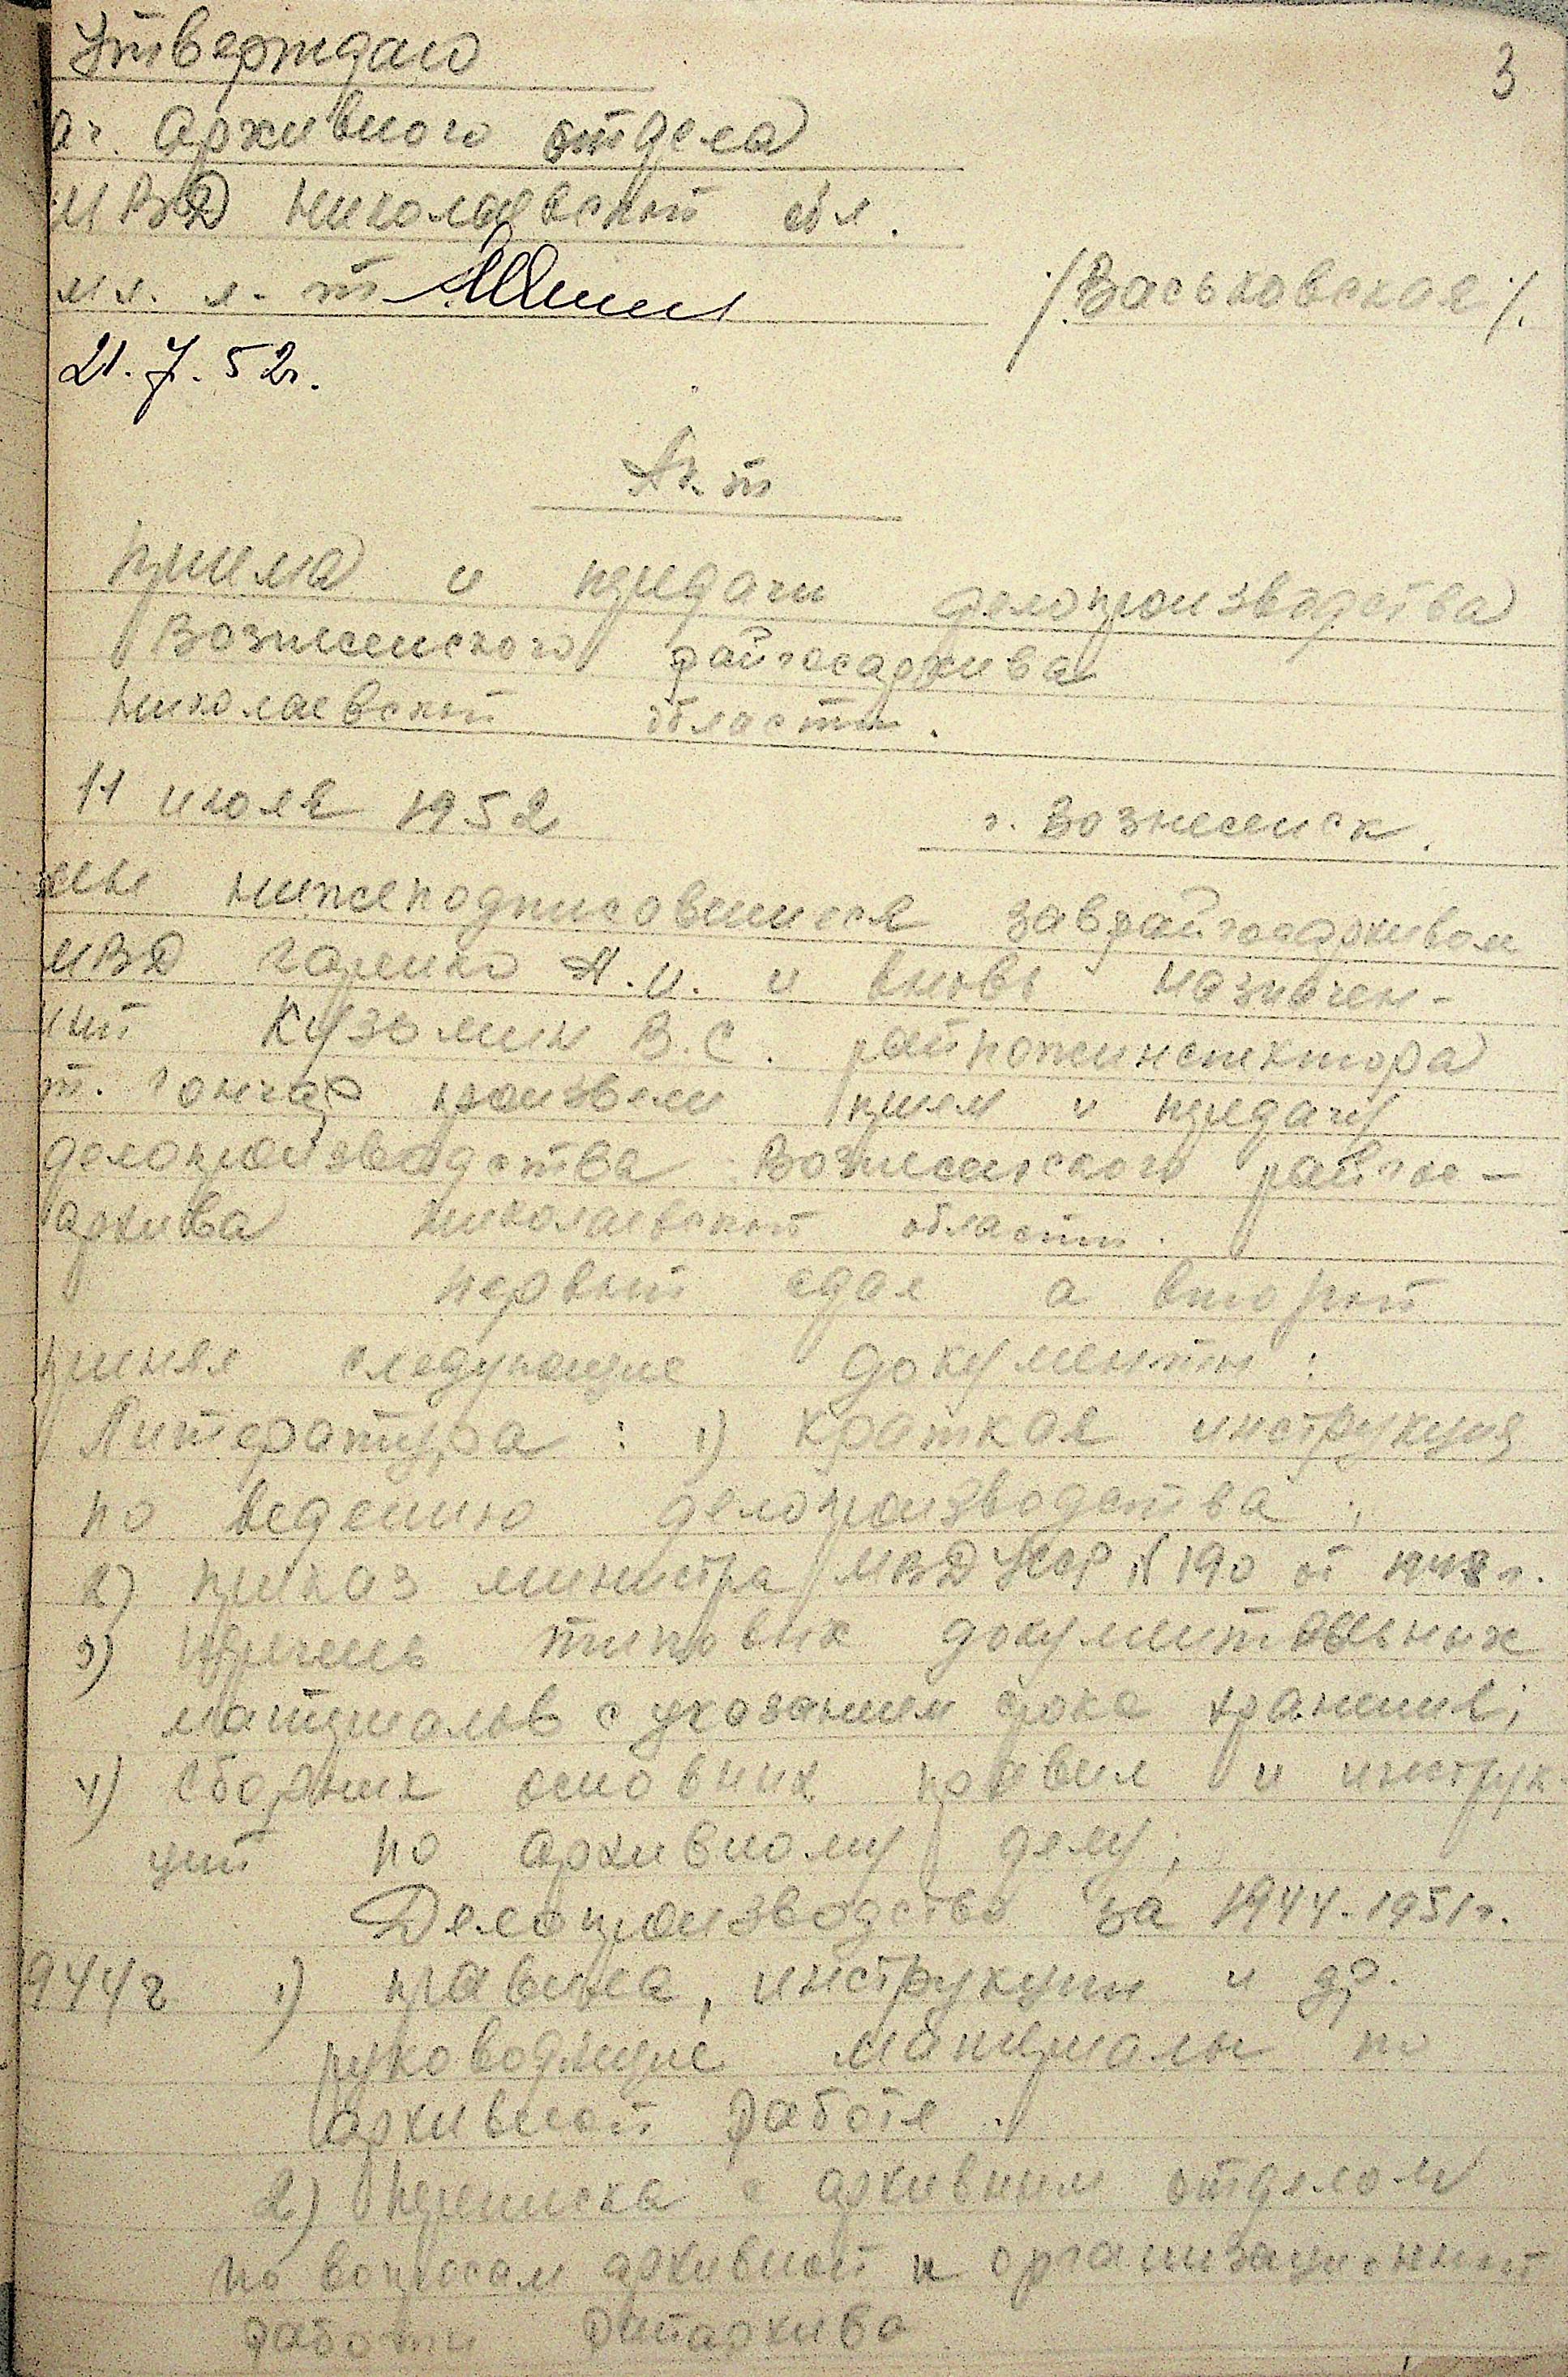 3
Утверждаю
ач. Архивного отдела
МВД Николаевской обл.
мл. л-т /Васьковская/.
21.7.52г.
Акт
приема и передачи делопроизводства
Вознесенского райгосархива
Николаевской области.
11 июля 1952 г. Вознесенск.
мы нижеподписовшиеся заврайгосархивом
МВД Гаренко А.И. и вновь назначен-
ный Кузьмин В.С. райпожинспектора
т. Гончар произвели прием и передачу
делопроизводства Вознесенского райгос-
архива Николаевской области.
первый сдал а второй
принял следующие документы:
Литература: 1) краткая инструкция
по ведению делопроизводства;
2) приказ министра МВД УССР N 190 от 1948 г.
3) перечень типовых документальных
материалов с указанием срока хранения;
4) сборник основних правил и инструк
ций по архивному делу;
Делопроизводство за 1944-1951г.
944г 1) правила, инструкции и др.
руководящие материалы по
архивной работе.
2) переписка с архивным отделом
по вопросам архивной и организационной
работы райархива